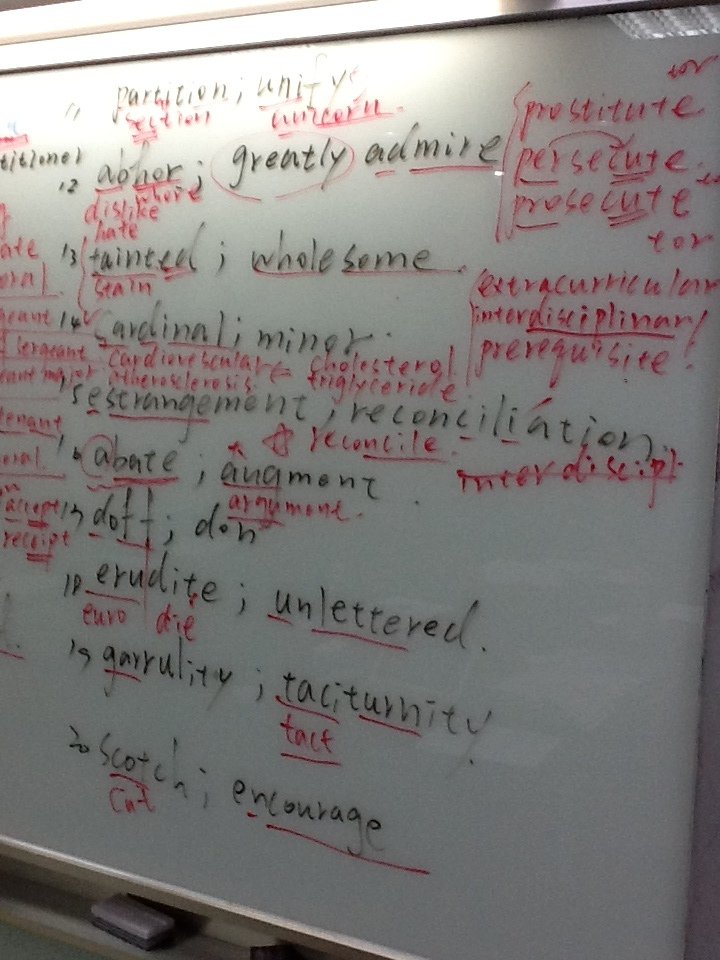 11 partition; unify tor
section unicorn prostitute
12 abhor; greatly admire persecute
whore prosecute
dislike
hate tor
13 tainted; wholesome
stain extracurricular
14 cardinal; minor interdisciplinary
sergeant cardiovescular cholesterol prerequisite
major atherosclerosis triglyceride
15 estrangement; reconciliation
reconcile
16 abate; augment interdiscipl
accept argument
17 doff; don
receipt
18 erudite; unlettered.
euro die
19 garrulity; taciturnity
tact
20 scotch; encourage
cut